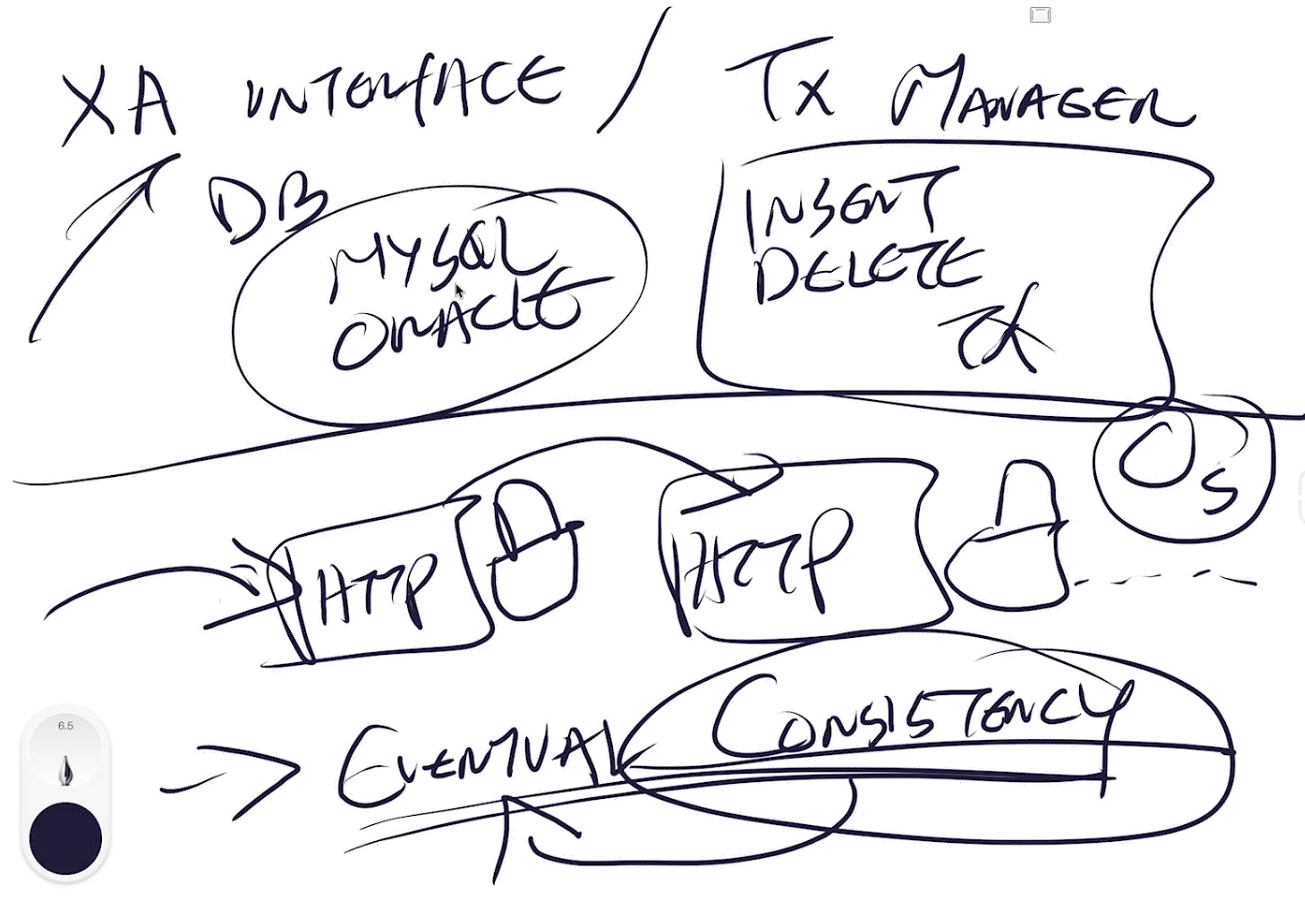 XA INTERFACE / TX MANAGER
DB
MYSQL
ORACLE
INSERT
DELETE
TX
OS
HTTP
HTTP
EVENTUAL CONSISTENCY
6.5